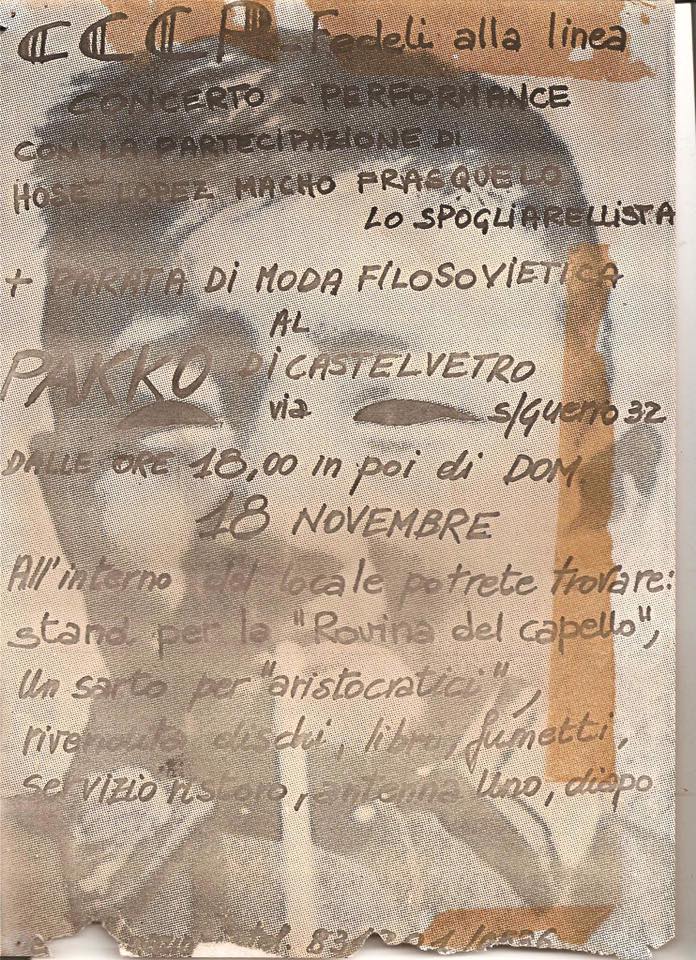 CCCP - Fedeli alla linea
CONCERTO = PERFORMANCE
CON LA PARTECIPAZIONE DI
HOSE LOPEZ MACHO FRASQUELO
LO SPOGLIARELLISTA
+ PARATA DI MODA FILOSOVIETICA
AL
PAKKO DI CASTELVETRO
via S/Guerro 32
DALLE ORE 18,00 in poi di DOM.
18 NOVEMBRE
All'interno del locale potrete trovare:
stand per la "Rovina del capello",
Un sarto per "aristocratici",
rivendita dischi, libri, fumetti,
servizio ristoro, antenna Uno, diapo
tel.